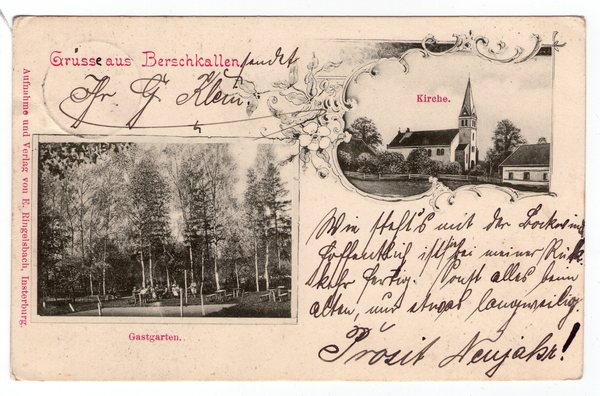 Grüsse aus Berschkallen sendet
Ihr G Klein.
Kirche.
Aufnahme und Verlag von E. Ringelsbach, Insterburg.
Gastgarten.
Wie steht's mit der
Hoffentlich ist sie bei meiner Rück
kehr fertig. Sonst alles beim
alten, nur etwas langweilig.
Prosit Neujahr!